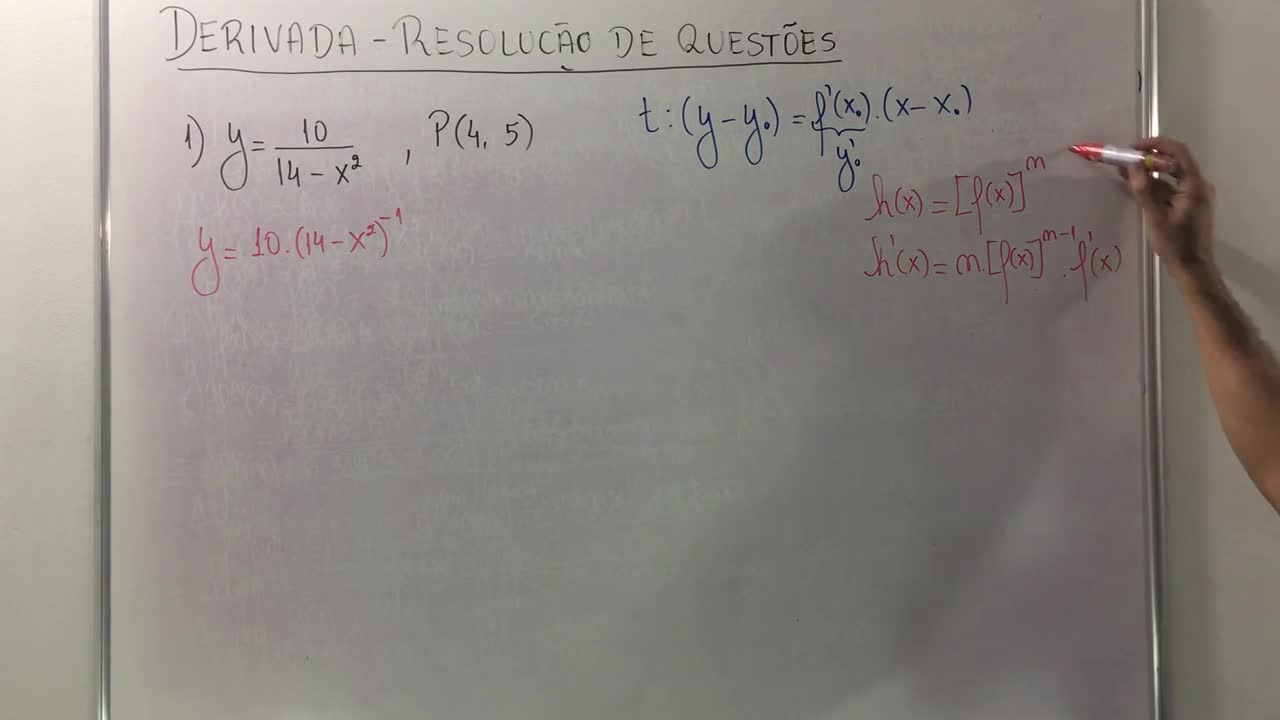 DERIVADA - RESOLUÇÃO DE QUESTÕES
1) y = 10 / (14 - x²) , P(4, 5)
t : (y - y₀) = f'(x₀) . (x - x₀)
y'₀
h(x) = [f(x)]ⁿ
h'(x) = n . [f(x)]ⁿ⁻¹ . f'(x)
y = 10 . (14 - x²)⁻¹